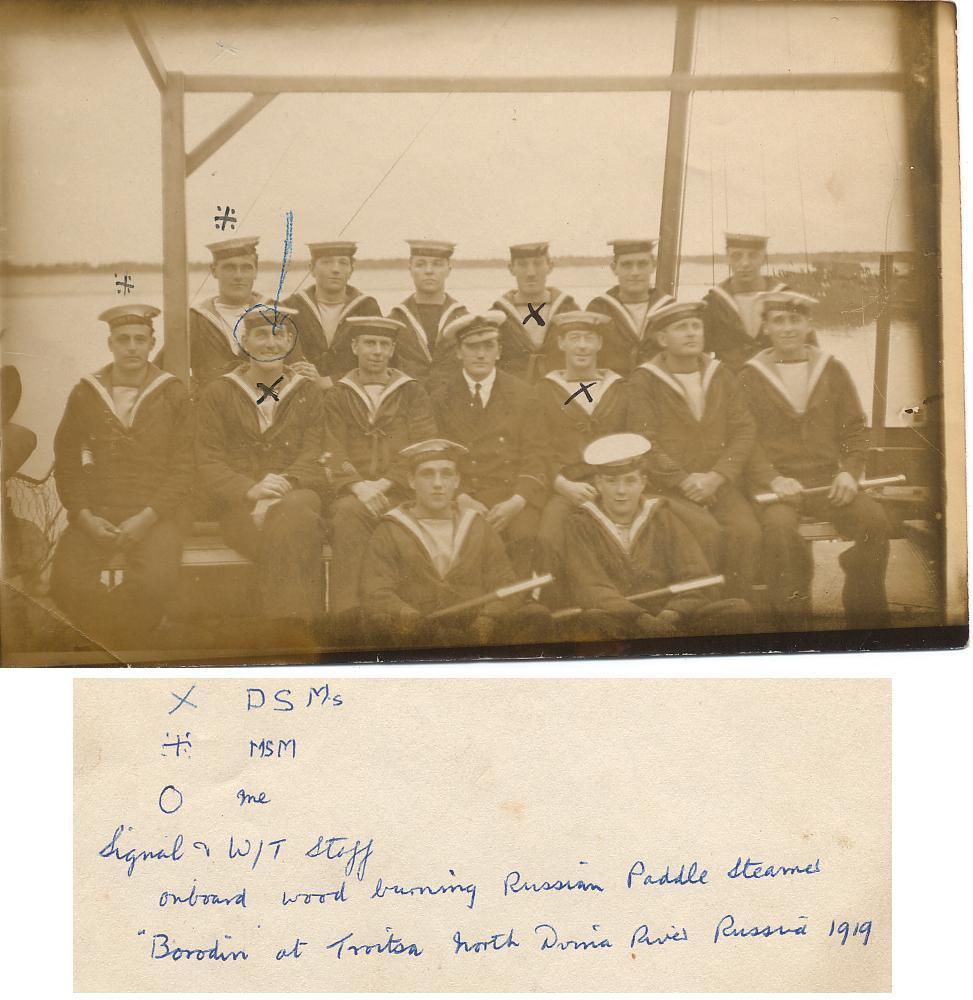 X DSMs
⁜ MSM
O me
Signal & W/T Staff
onboard wood burning Russian Paddle Steamer
"Borodin" at Troitsa North Dvina River Russia 1919